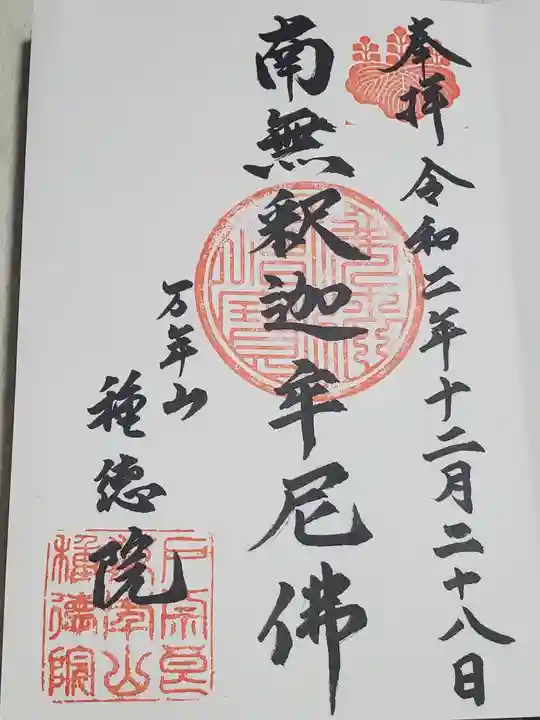 奉拝 令和二年十二月二十八日
南無釈迦牟尼佛
万年山
種徳院